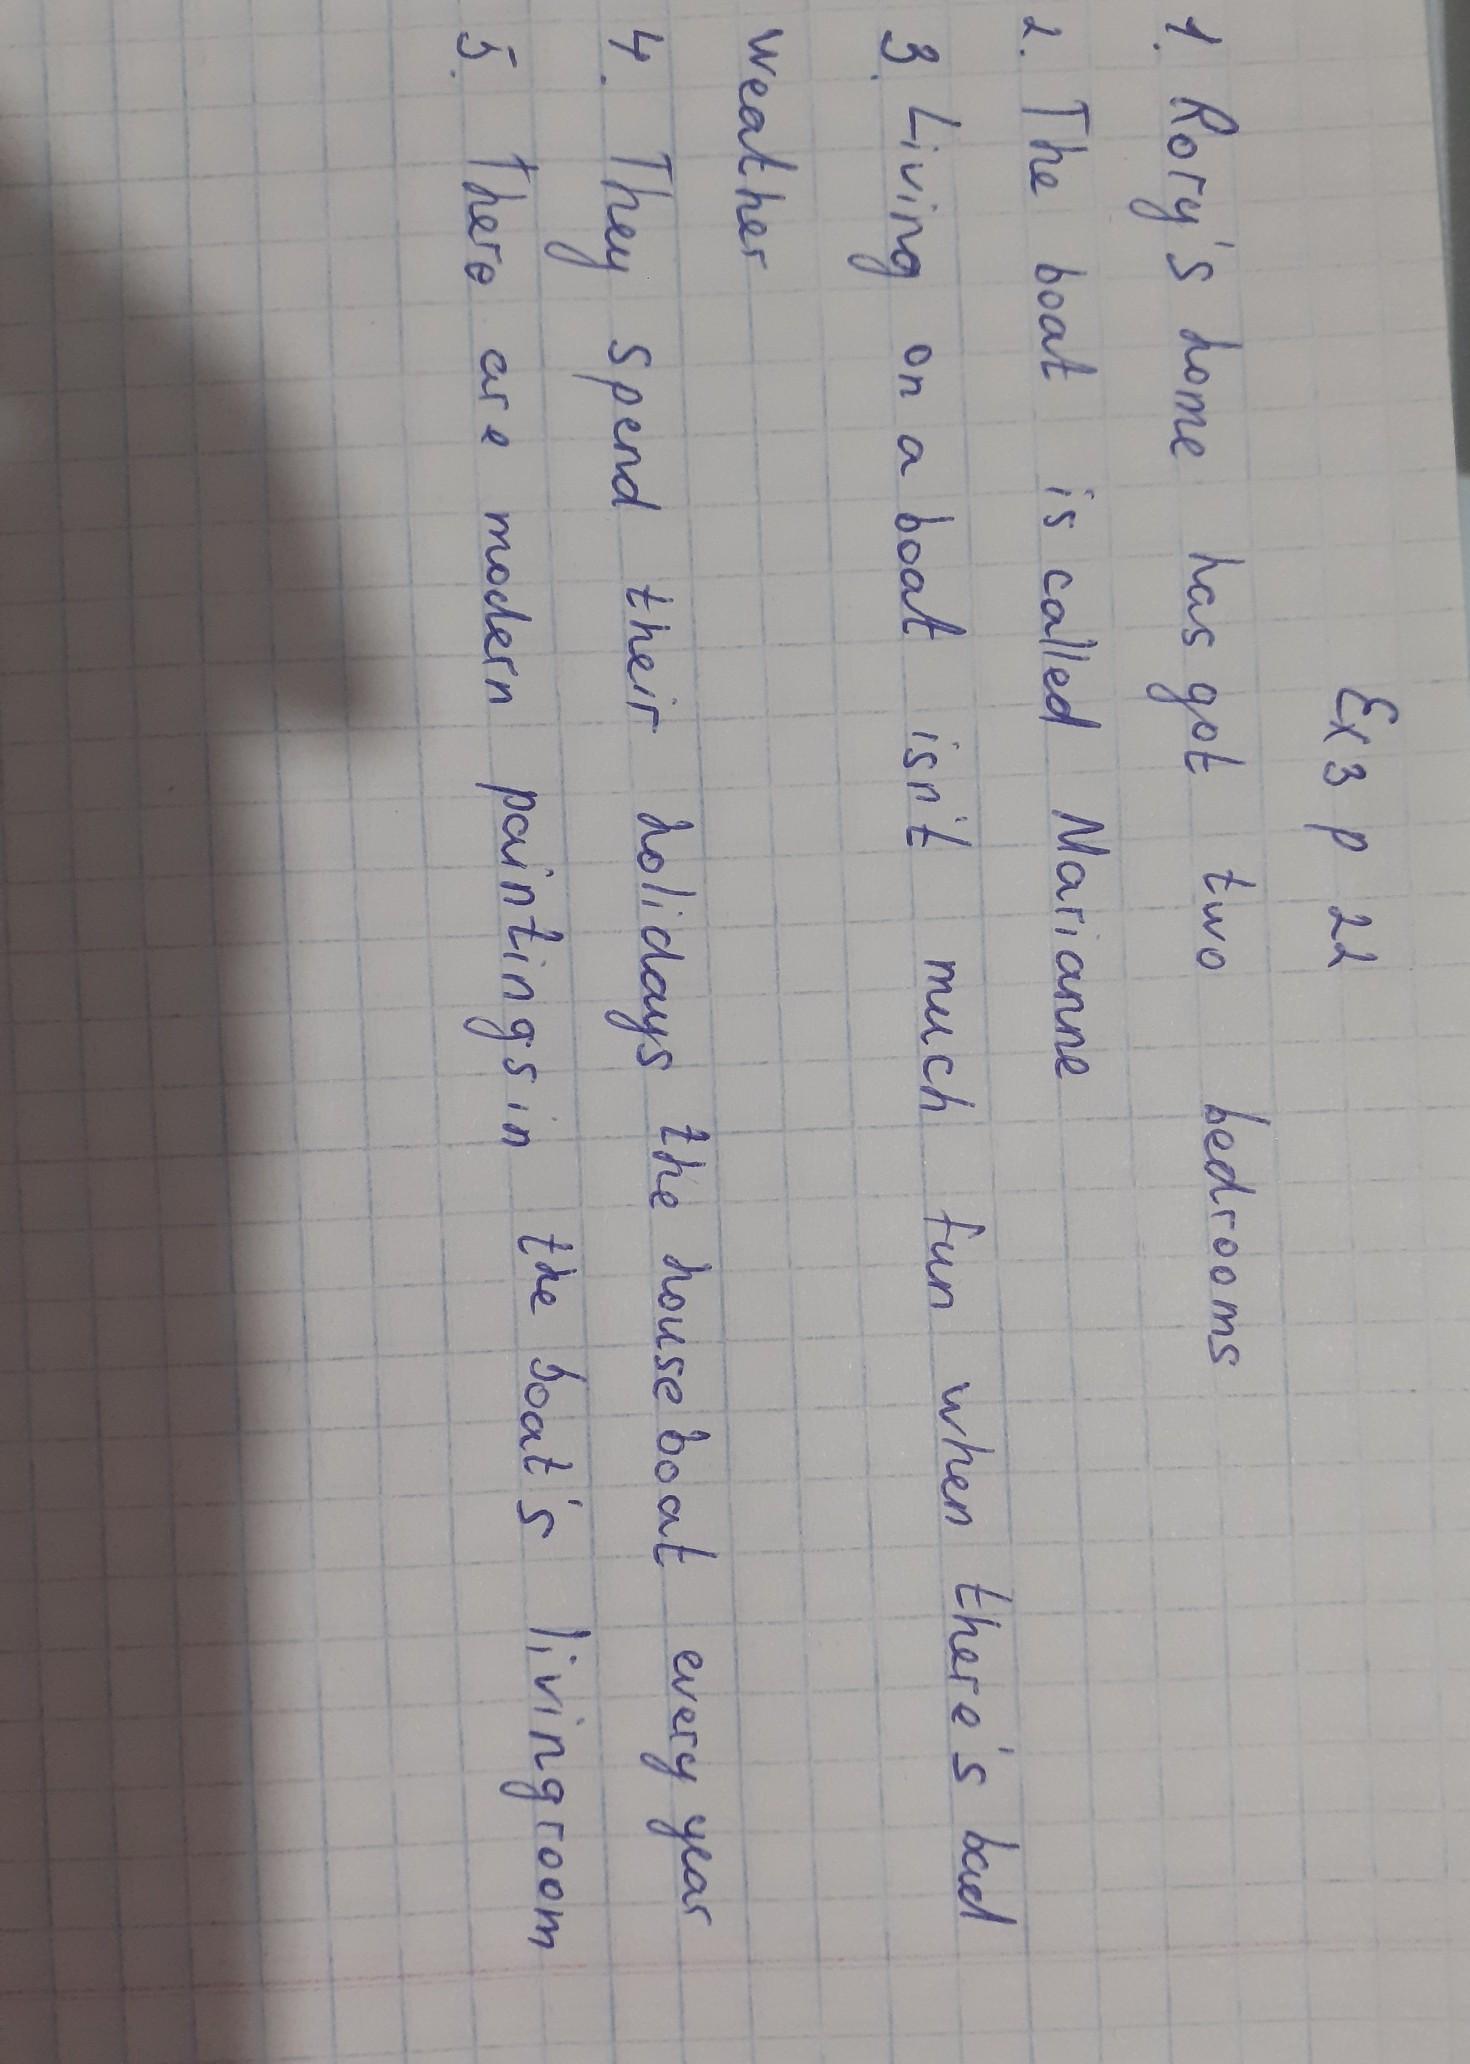 Ex 3 p 22
1. Rory's home has got two bedrooms
2. The boat is called Marianne
3. Living on a boat isn't much fun when there's bad
weather
4. They spend their holidays the houseboat every year
5. There are modern paintings in the boat's livingroom